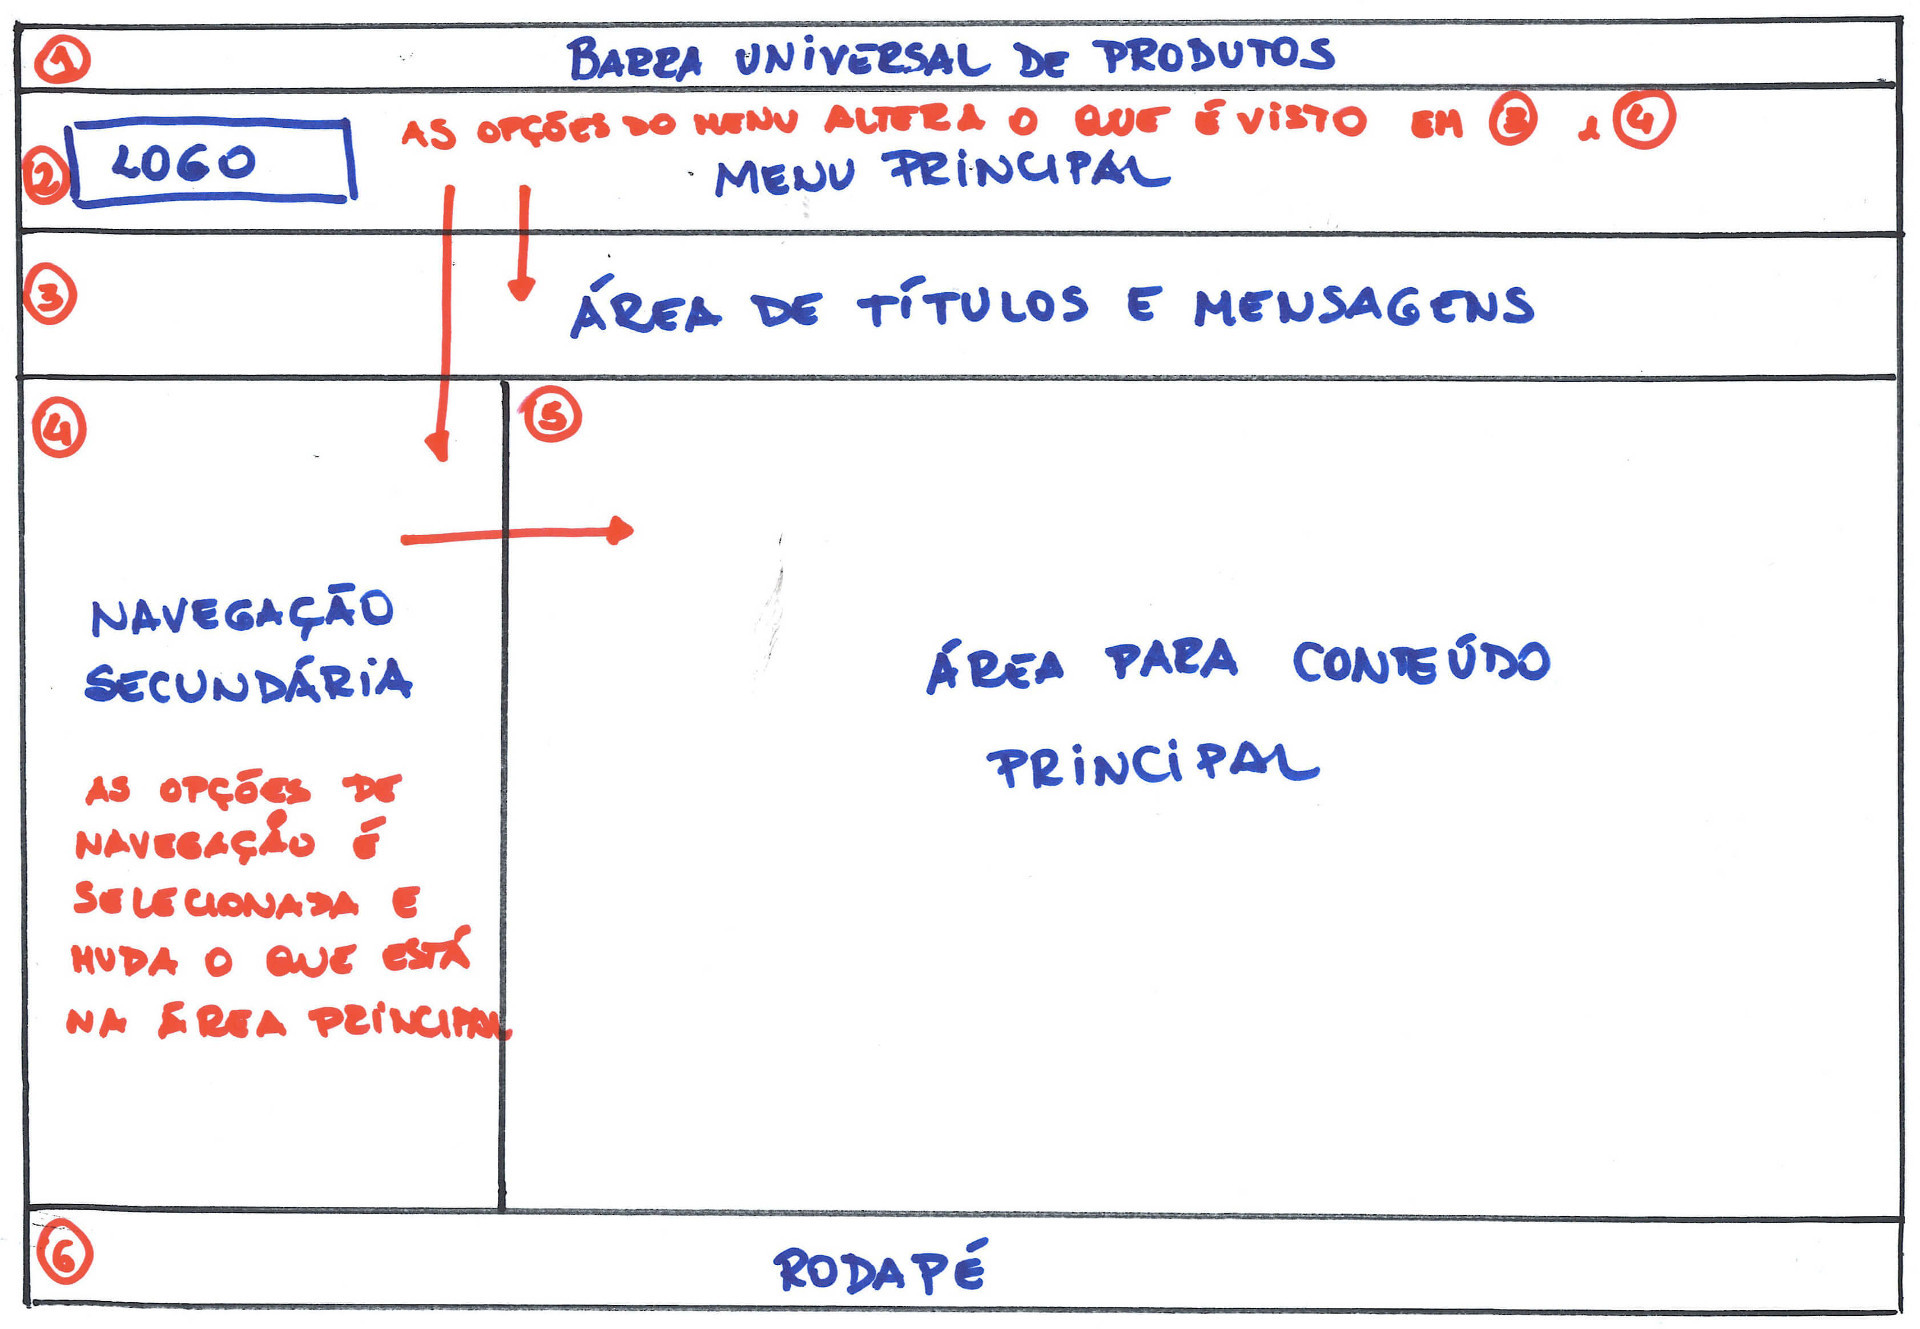 1 BARRA UNIVERSAL DE PRODUTOS
AS OPÇÕES DO MENU ALTERA O QUE É VISTO EM 3 e 4
2 LOGO MENU PRINCIPAL
3 ÁREA DE TÍTULOS E MENSAGENS
4
NAVEGAÇÃO
SECUNDÁRIA
AS OPÇÕES DE
NAVEGAÇÃO É
SELECIONADA E
MUDA O QUE ESTÁ
NA ÁREA PRINCIPAL
5
ÁREA PARA CONTEÚDO
PRINCIPAL
6 RODAPÉ